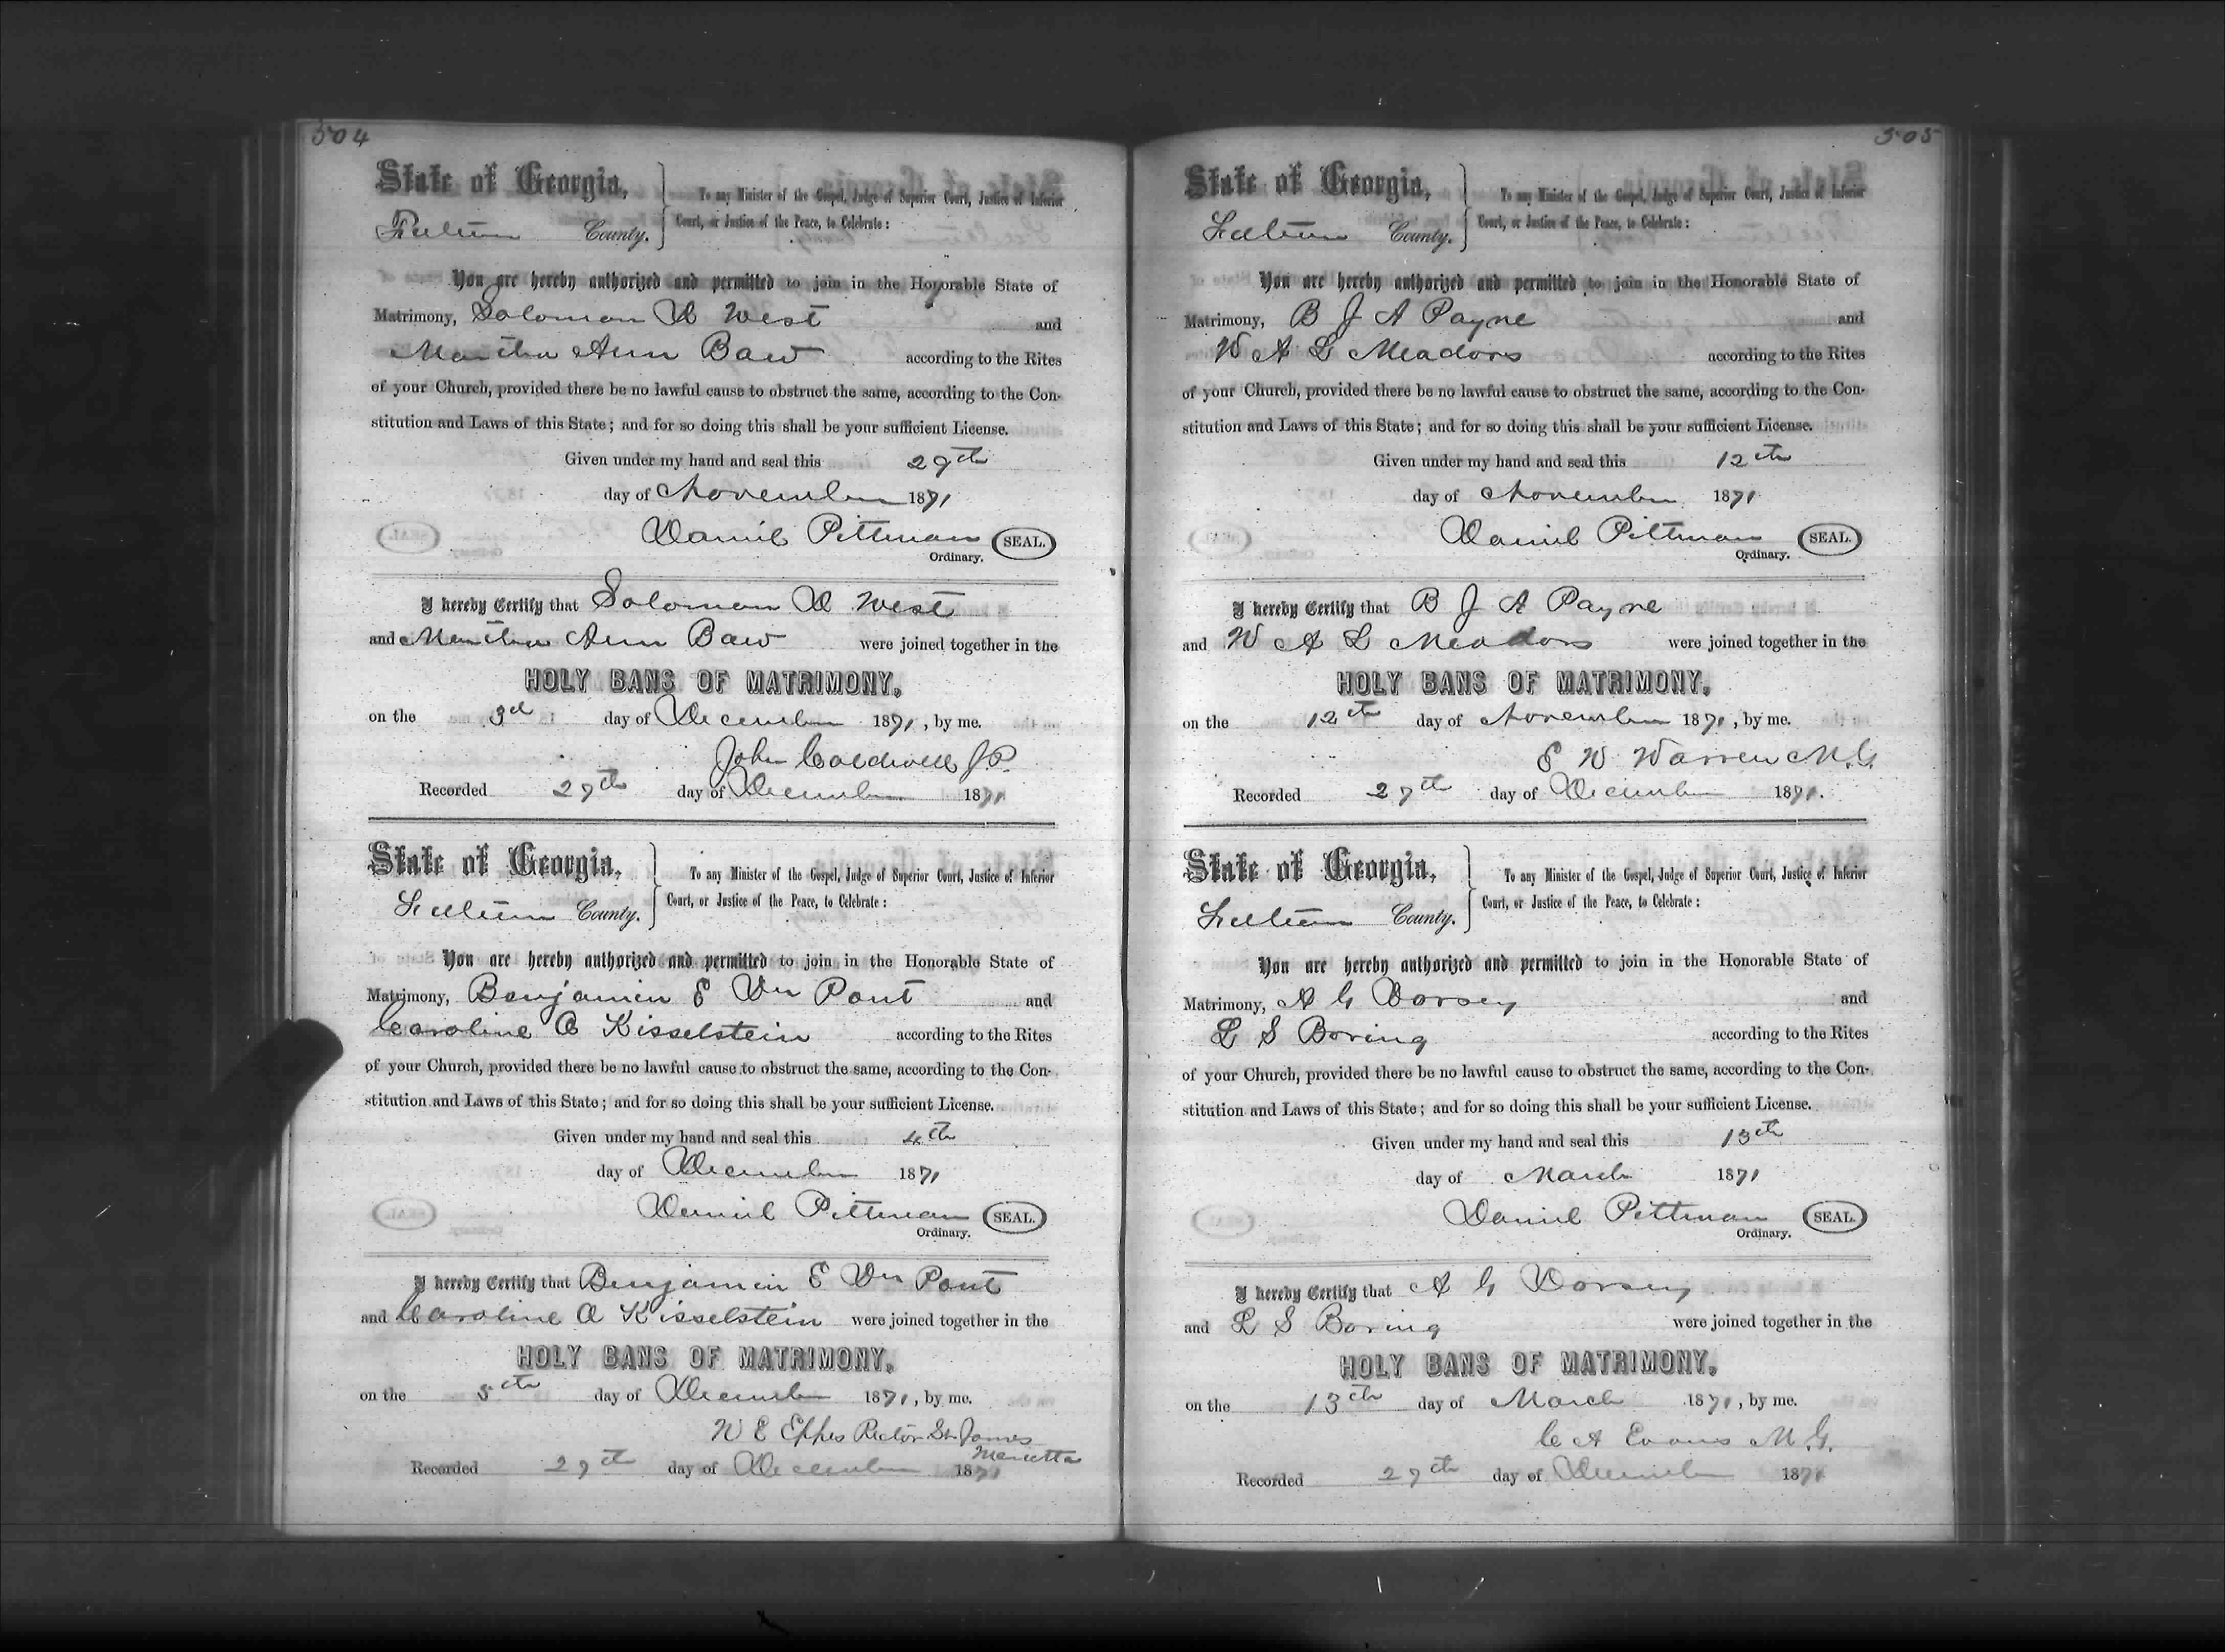 504
State of Georgia,
Fulton County.
To any Minister of the Gospel, Judge of Superior Court, Justice of Inferior
Court, or Justice of the Peace, to Celebrate:
You are hereby authorized and permitted to join in the Honorable State of
Matrimony, Solomon D West and
Martha Ann Baw according to the Rites
of your Church, provided there be no lawful cause to obstruct the same, according to the Con-
stitution and Laws of this State; and for so doing this shall be your sufficient License.
Given under my hand and seal this 29th
day of November 1871
Daniel Pittman SEAL.
Ordinary.
I hereby Certify that Solomon D West
and Martha Ann Baw were joined together in the
HOLY BANS OF MATRIMONY,
on the 3d day of December 1871, by me.
John Caldwell J.P.
Recorded 27th day of December 1871
State of Georgia,
Fulton County.
To any Minister of the Gospel, Judge of Superior Court, Justice of Inferior
Court, or Justice of the Peace, to Celebrate:
You are hereby authorized and permitted to join in the Honorable State of
Matrimony, Benjamin E Du Pont and
Caroline A Kisselstein according to the Rites
of your Church, provided there be no lawful cause to obstruct the same, according to the Con-
stitution and Laws of this State; and for so doing this shall be your sufficient License.
Given under my hand and seal this 4th
day of December 1871
Daniel Pittman SEAL.
Ordinary.
I hereby Certify that Benjamin E Du Pont
and Caroline A Kisselstein were joined together in the
HOLY BANS OF MATRIMONY,
on the 5th day of December 1871, by me.
W E Eppes Rector St James
Marietta
Recorded 27th day of December 1871
505
State of Georgia,
Fulton County.
To any Minister of the Gospel, Judge of Superior Court, Justice of Inferior
Court, or Justice of the Peace, to Celebrate:
You are hereby authorized and permitted to join in the Honorable State of
Matrimony, B J A Payne and
W A L Meadors according to the Rites
of your Church, provided there be no lawful cause to obstruct the same, according to the Con-
stitution and Laws of this State; and for so doing this shall be your sufficient License.
Given under my hand and seal this 12th
day of November 1871
Daniel Pittman SEAL.
Ordinary.
I hereby Certify that B J A Payne
and W A L Meadors were joined together in the
HOLY BANS OF MATRIMONY,
on the 12th day of November 1871, by me.
E W Warren M.G.
Recorded 27th day of December 1871.
State of Georgia,
Fulton County.
To any Minister of the Gospel, Judge of Superior Court, Justice of Inferior
Court, or Justice of the Peace, to Celebrate:
You are hereby authorized and permitted to join in the Honorable State of
Matrimony, A G Dorsey and
L S Boring according to the Rites
of your Church, provided there be no lawful cause to obstruct the same, according to the Con-
stitution and Laws of this State; and for so doing this shall be your sufficient License.
Given under my hand and seal this 13th
day of March 1871
Daniel Pittman SEAL.
Ordinary.
I hereby Certify that A G Dorsey
and L S Boring were joined together in the
HOLY BANS OF MATRIMONY,
on the 13th day of March 1871, by me.
C A Evans M.G.
Recorded 27th day of December 1871